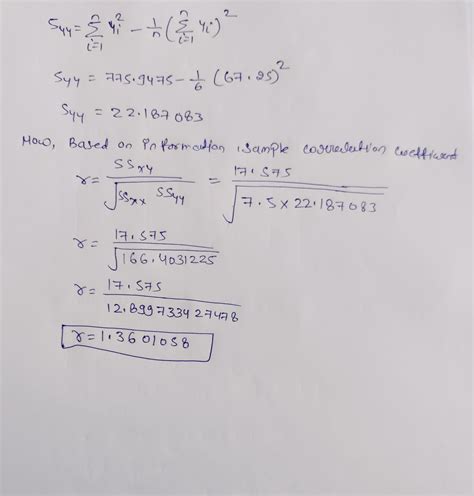 Syy = Σ_{i=1}^{n} yi² - 1/n (Σ_{i=1}^{n} yi)²
Syy = 775.9475 - 1/6 (67.25)²
Syy = 22.187083
Now, Based on information, sample correlation coefficient
r = SSxy / √(SSxx SSyy) = 17.575 / √(7.5 × 22.187083)
r = 17.575 / √166.4031225
r = 17.575 / 12.89973342 7478
r = 1.3601058